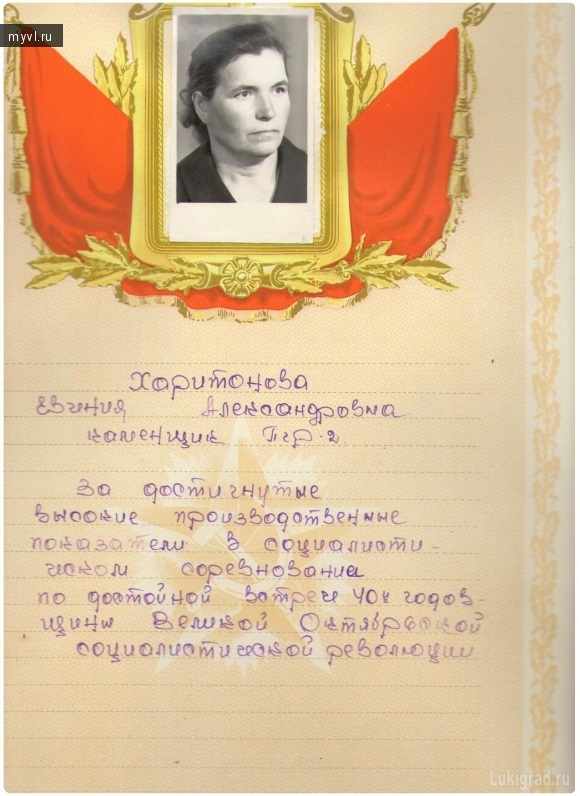 myvl.ru
Харитонова
Евгения Александровна
каменщик
За достигнутые
высокие производственные
показатели в социалисти-
ческом соревновании
по достойной встрече 40й годов-
щины Великой Октябрьской
социалистической революции
Lukigrad.ru